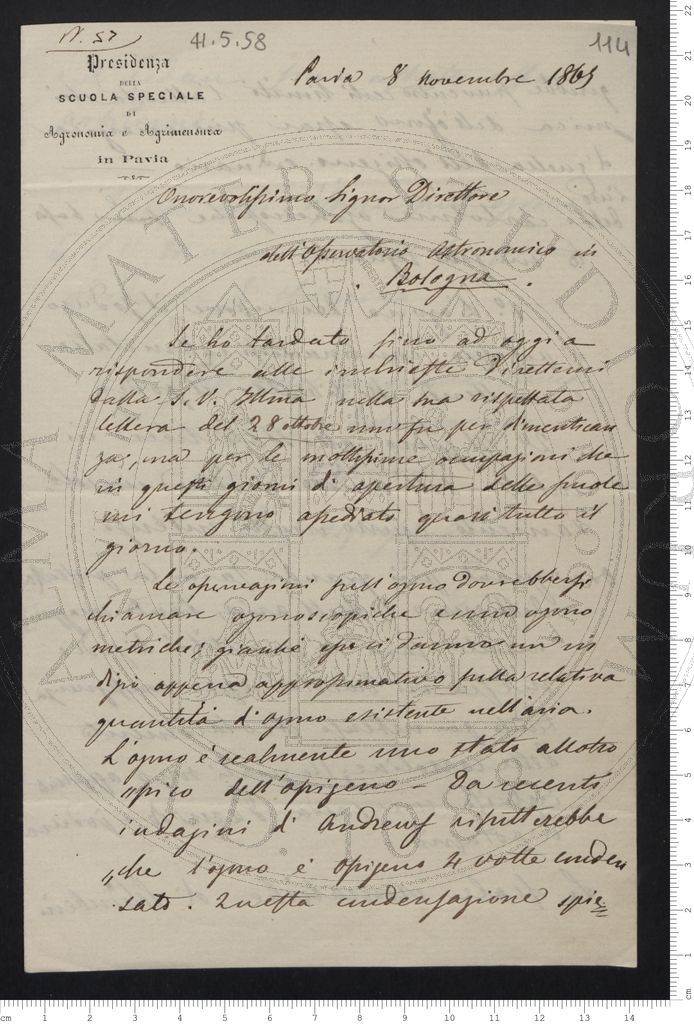 N. 57
41.5.58
114
Presidenza
DELLA
SCUOLA SPECIALE
DI
Agronomia e Agrimensura
in Pavia
Pavia 8 novembre 1865
Onorevolissimo Signor Direttore
dell'Osservatorio Astronomico in
Bologna.
Se ho tardato fino ad oggi a
rispondere alle inchieste direttemi
dalla S. V. Illma nella sua rispettata
lettera del 28 ottobre non fu per dimentican
za, ma per le moltissime occupazioni che
in questi giorni di apertura delle scuole
mi tengono assediato quasi tutto il
giorno.
Le osservazioni sull'ozono dovrebbersi
chiamare ozonoscopiche e non ozono
metriche; giacché esse ci danno un in
dizio appena approssimativo sulla relativa
quantità d'ozono esistente nell'aria.
L'ozono è realmente uno stato allotro
"pico dell'ossigeno – Da recenti
indagini di Andrews risulterebbe
"che l'ozono è ossigeno 4 volte conden
sato. Questa condensazione spie